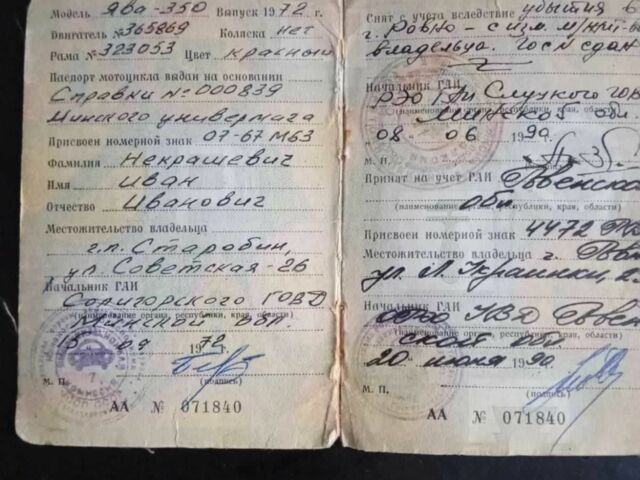 Модель Ява-350 Выпуск 1972 г.
Двигатель № 365869 Коляска нет
Рама № 323053 Цвет красный
Паспорт мотоцикла выдан на основании
Справки № 000839
Минского универмага
Присвоен номерной знак 07-67 МБЗ
Фамилия Некрашевич
Имя Иван
Отчество Иванович
Местожительство владельца
г.п. Старобин,
ул. Советская-26
Начальник ГАИ
Солигорского ГОВД
Минской обл.
(наименование органа, республики, края, области)
09 1972
М. П. (подпись)
АА № 071840
Снят с учета вследствие убытия в
г. Ровно - с изм. м/жит-ва
владельца. Госн сдан
Начальник ГАИ
РЭО ГАИ Слуцкого гор
Минской обл
08 06 1990
М. П.
Принят на учет ГАИ Ровенска
обл
(наименование органа, республики, края, области)
Присвоен номерной знак 4472
Местожительство владельца г. Ровн
ул. Л. Украинки, 2
Начальник ГАИ
УВД Ровен
(наименование органа, республики, края, области)
ской обл
20 июня 1990
М. П. (подпись)
АА № 071840